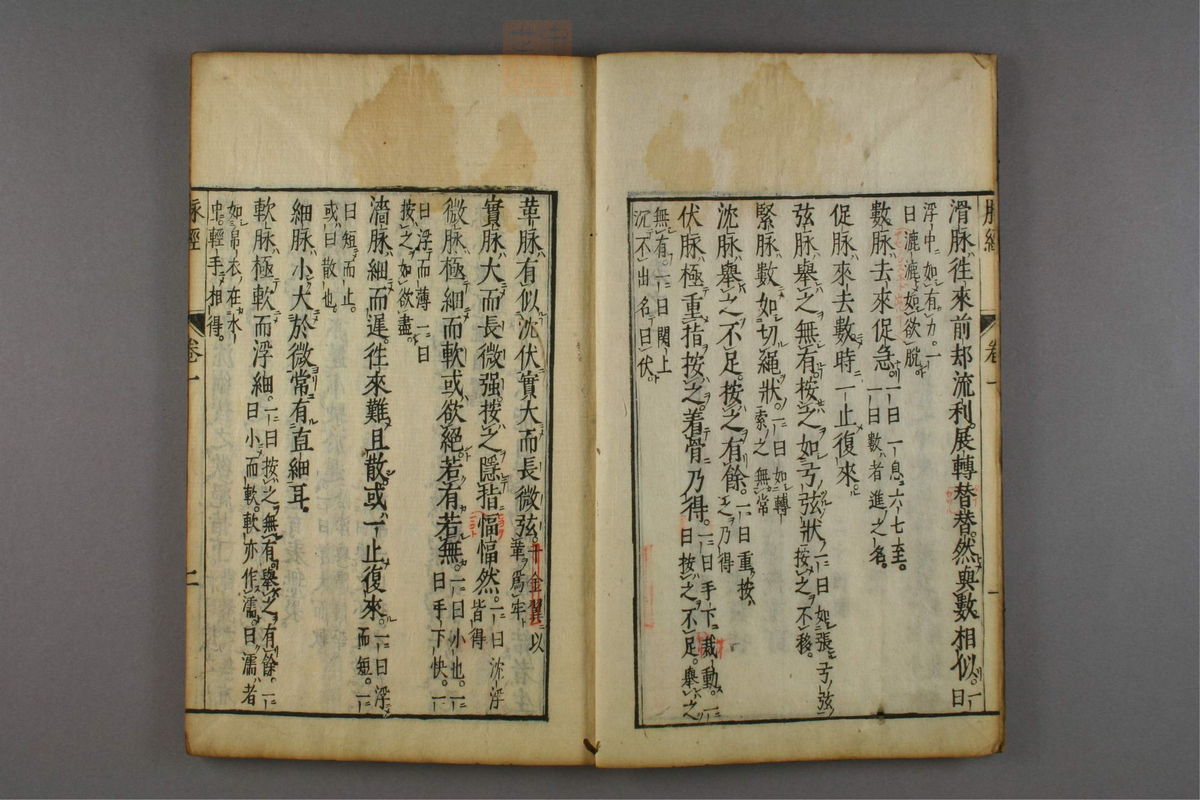 滑脉往來前却流利展轉替替然與數相似。一曰
浮中如有力。一
曰漉漉如欲脫
數脉去來促急。一曰一息六七至。
一曰數者進之名。
促脉來去數時一止復來。
弦脉舉之無有按之如弓弦狀一曰如張弓弦
按之不移。
緊脉數如切繩狀。一曰如轉
索之無常
沈脉舉之不足按之有餘。一曰重按
之乃得
伏脉極重指按之。着骨乃得。一曰手下裁動。一
曰按之不足。舉之
無有。一曰關上
沉不出名曰伏
革脉有似沈伏實大而長微弦。千金翼以
革爲牢
實脉大而長微强按之隱指愊愊然。一曰沈浮
皆得
微脉極細而軟或欲絕。若有若無。一曰小也。一
曰手下快。一
曰浮而薄一曰
按之如欲盡。
濇脉細而遲。往來難且散或一止復來。一曰浮
而短。一
曰短而止。
或曰散也。
細脉小大於微常有直細耳。
軟脉極軟而浮細。一曰按之無有舉之有餘。一
曰小而軟。軟亦作濡。曰濡者
如帛衣在水
中輕手相得。
脉經 卷一 二